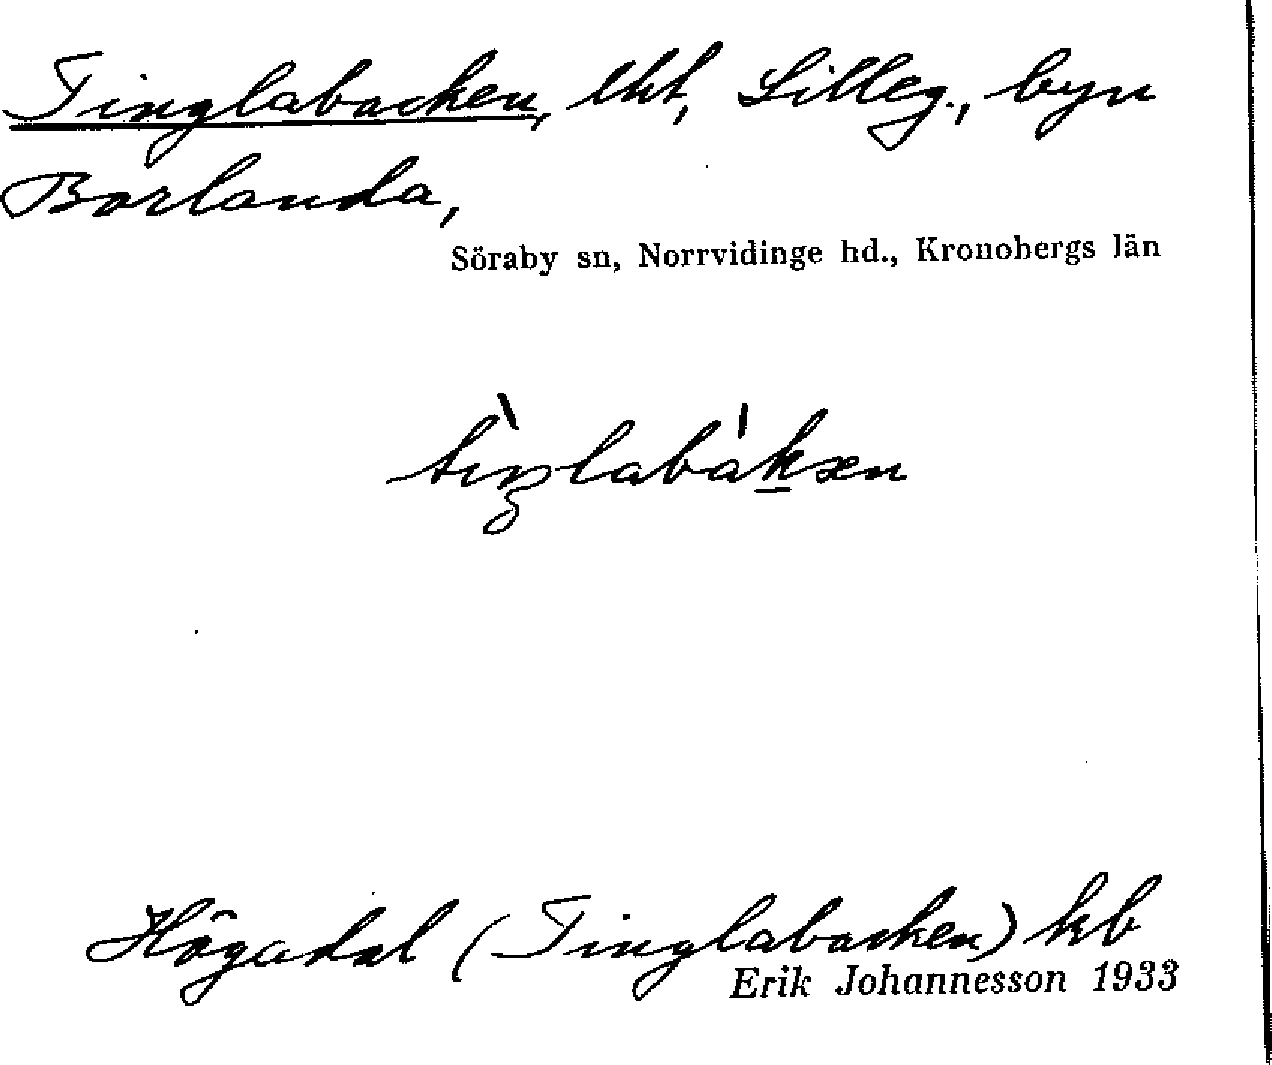 Tinglabacken, lht, Lilleg., byn
Borlanda,
Söraby sn, Norrvidinge hd., Kronobergs län
Högadal (Tinglabacken) kb
Erik Johannesson 1933